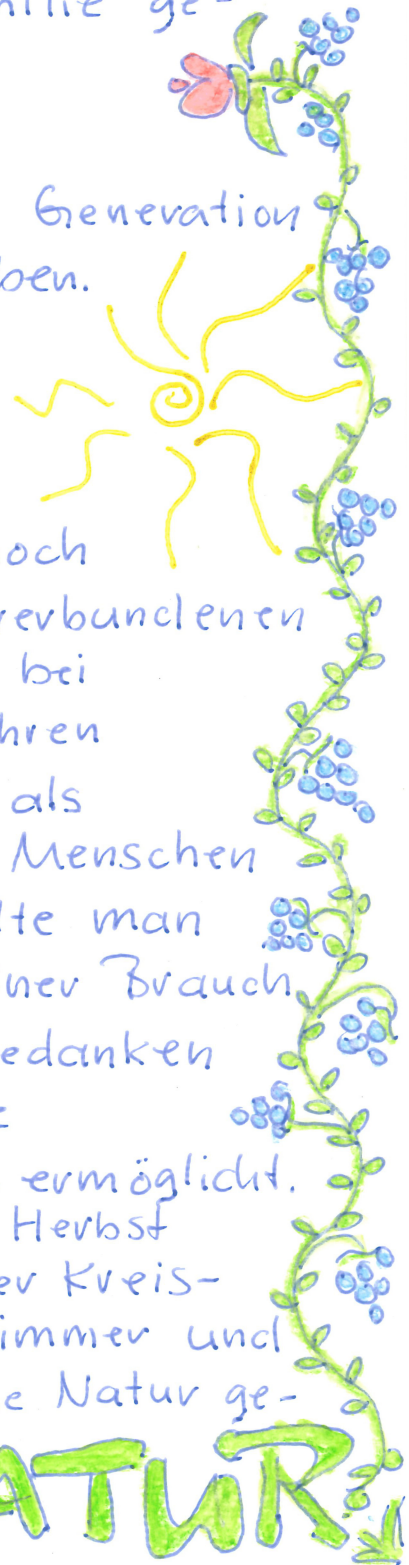 ge-
Generation
ben.
och
verbundenen
bei
hren
als
Menschen
lte man
ner Brauch
edanken
ermöglicht.
Herbst
er Kreis-
immer und
e Natur ge-
ATUR